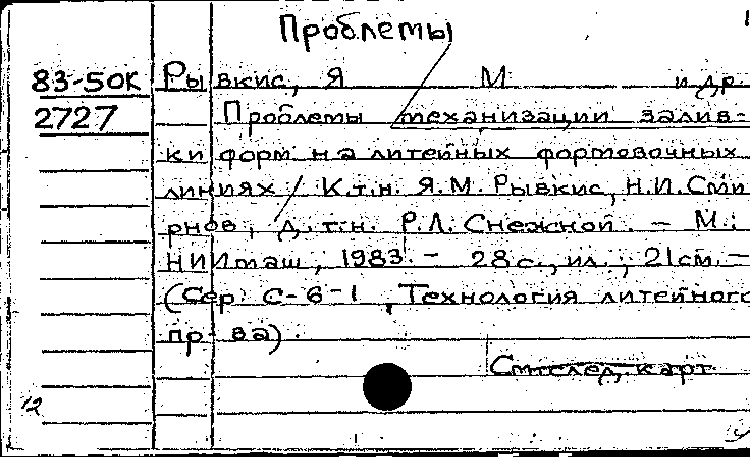 Проблемы
83-50К Рывкис, Я М и др.
2727 Проблемы механизации залив-
ки форм на литейных формовочных
линиях / К.т.н. Я.М. Рывкис, Н.И. Сми
рнов, д.т.н. Р.Л. Снежной. - М.:
НИИмаш, 1983. - 28 с., ил.; 21 см. -
(Сер. С-6-1, Технология литейного
пр-ва).
См след. карт
12